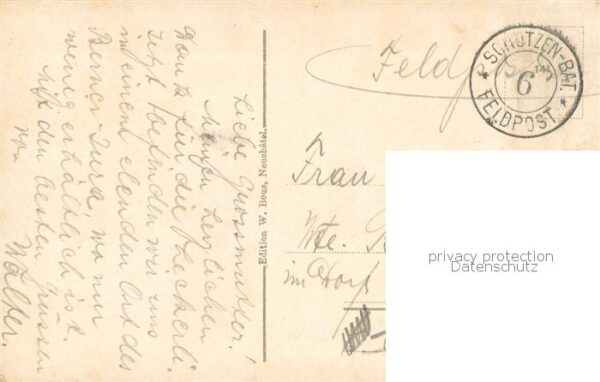 Liebe Grossmutter!
Meinen herzlichen
Dank für die Leckerli.
Jetzt befinden wir uns
in einem elenden Ort des
Berner-Jura, wo nur
wenig erhältlich ist.
Mit den besten Grüssen
Walter.
Edition W. Bous, Neuchâtel.
Feldpost
SCHÜTZEN-BAT.
6
FELDPOST
Frau
Wte.
im Dorf
privacy protection
Datenschutz